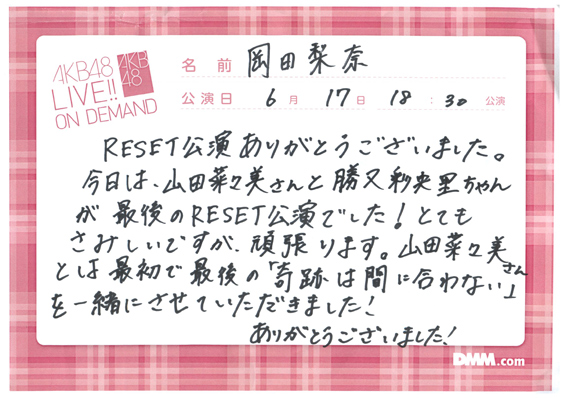 AKB48
LIVE!!
ON DEMAND
AKB
48
名前 岡田梨奈
公演日 6月17日 18:30公演
RESET公演ありがとうございました。
今日は、山田菜々美さんと勝又彩央里ちゃん
が最後のRESET公演でした!とても
さみしいですが、頑張ります。山田菜々美さん
とは最初で最後の「奇跡は間に合わない」
を一緒にさせていただきました!
ありがとうございました!
DMM.com